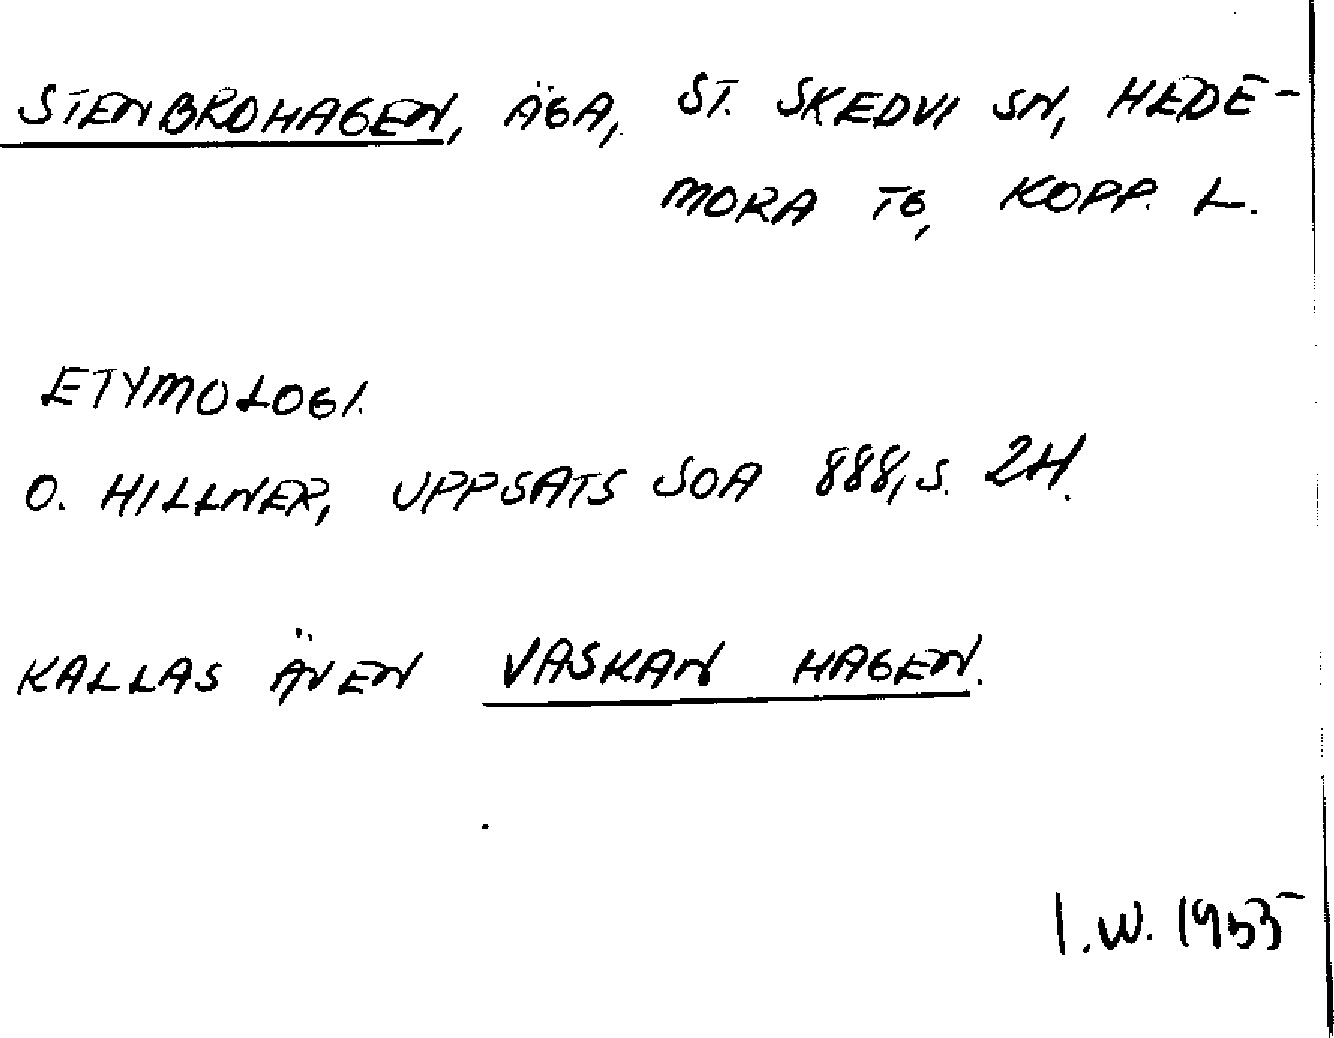 STENBROHAGEN, ÄGA, ST. SKEDVI SN, HEDE-
MORA TG, KOPP. L.
ETYMOLOGI.
O. HILLNER, UPPSATS SOA 888, S. 24.
KALLAS ÄVEN VASKAN HAGEN.
I.W. 1955